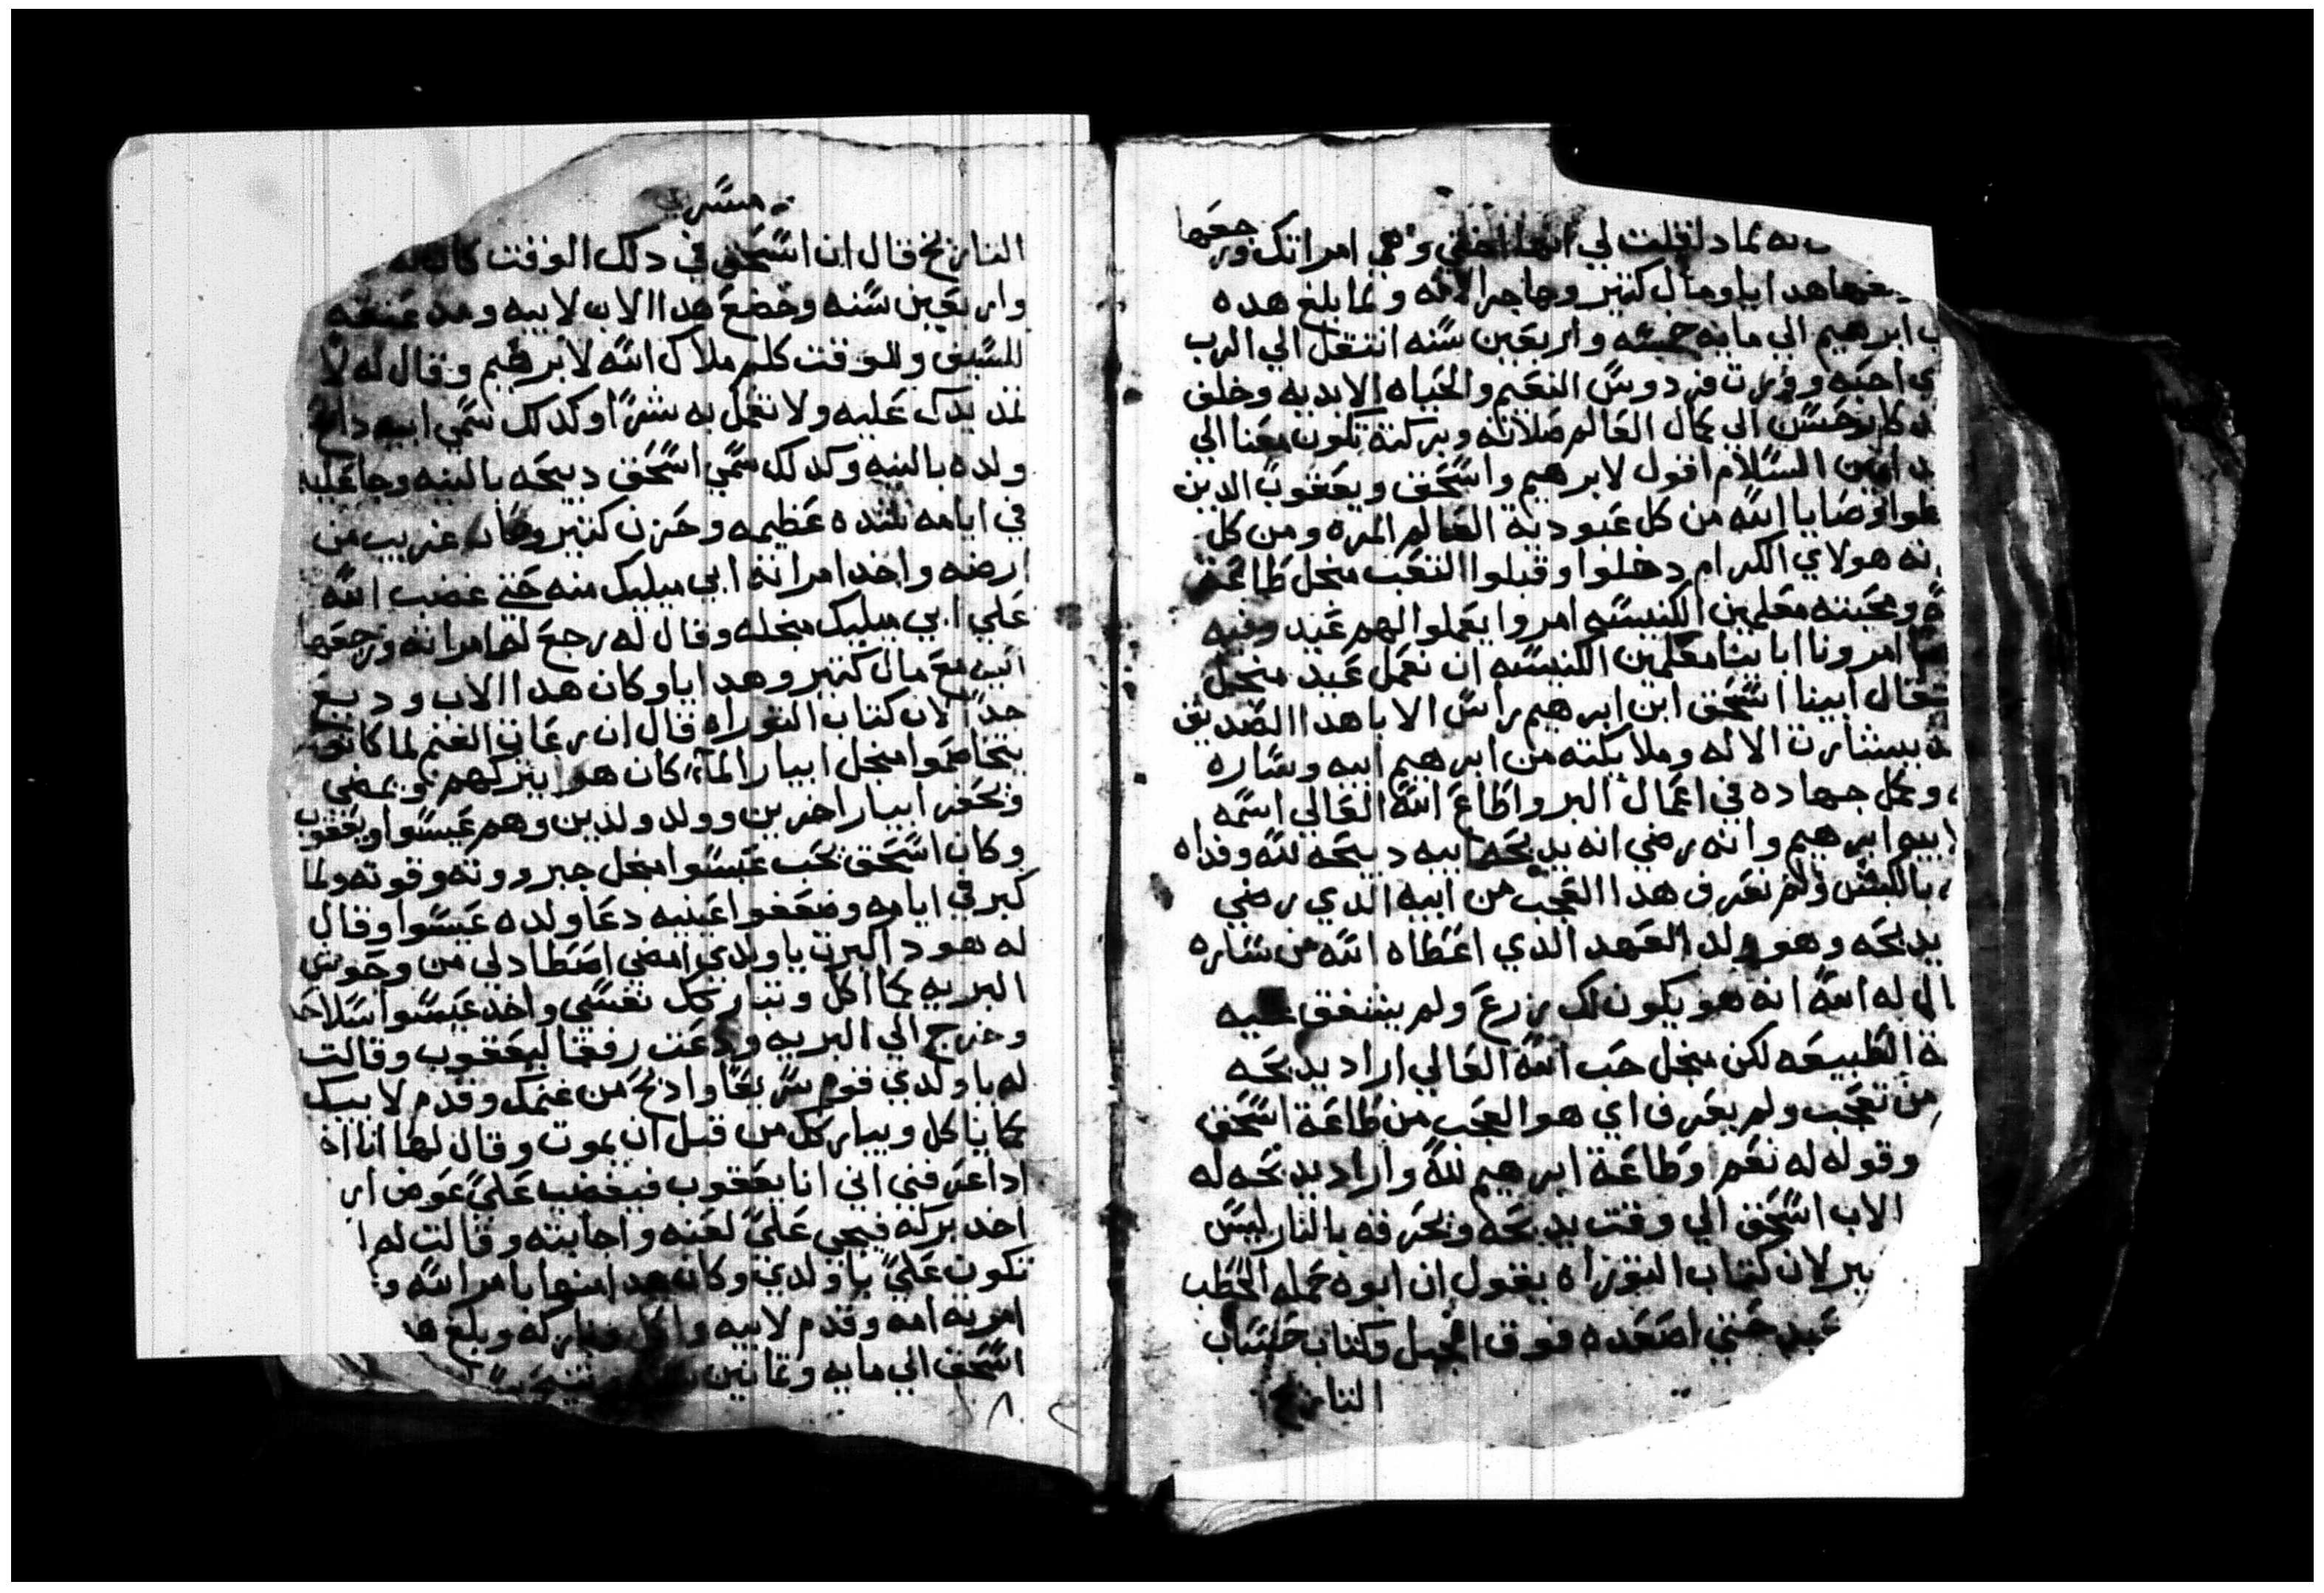 به لمادا قلت لي انها اختي وهي امراتك ورجعها
هدايا ومال كتير وهاجر الامه ولما بلغ هده
ابرهيم الي مايه خمسه واربعين سنه انتقل الي الرب
احبه وورت فردوس النعيم والحياه الابديه وخلف
حسن الي كمال العالم صلاته وبركته تكون معنا الي
امين السلام اقول لابرهيم واسحق ويعقوب الدين
وصايا الله من كل عبودية العالم المره ومن كل
هولاي الكرام دخلوا وقبلوا التعب منجل طاعة
ومحبته معلمين الكنيسه امروا يعملوا لهم عيد وفيه
امرونا ابايينا معلمين الكنيسه ان نعمل عيد منجل
انتقال ابينا اسحق ابن ابرهيم راس الابا هدا الصديق
ببشارت الاله وملايكته من ابرهيم ابيه وساره
وكمل جهاده في اعمال البر واطاع الله العالي اسمه
ابيه ابرهيم وانه رضي انه يدبحه ابيه دبيحه لله وفداه
بالكبش ولم نعرف هدا العجب من ابيه الدي رضي
يدبحه وهو ولد العهد الدي اعطاه الله من ساره
قال له الله انه هو يكون لك زرع ولم يشفق عليه
الطبيعه لكن منجل حب الله العالي اراد يدبحه
من تعجب ولم يعرف اي هو العجب من طاعة اسحق
وقوله له نعم وطاعة ابرهيم لله واراد يدبحه له
الاب اسحق الي وقت يدبحه ويحرقه بالنار ليس
لان كتاب التوراه يقول ان ابوه حمله الحطب
حتي اصعده فوق الجبل وكتاب حساب
التاريخ
التاريخ قال ان اسحق في دلك الوقت كان له
واربعين سنه وخضع هدا الاب لابيه ومد عنقه
للسيف وللوقت كلم ملاك الله لابرهيم وقال له لا
تمد يدك عليه ولا تعمل به شرا وكدلك سمي ابيه دابح
ولده بالنيه وكدلك سمي اسحق دبيحه بالنيه وجا عليه
في ايامه شده عظيمه وحزن كتير وكان غريب من
ارضه واخد امراته ابي ميليك منه حتي غضب الله
علي ابي ميليك منجله وقال له رجع له امراته ورجعها
مع مال كتير وهدايا وكان هدا الاب وديع
جدا لان كتاب التوراه قال ان رعاة الغنم لما كانوا
يتخاصموا منجل ابيار الما كان هو يتركهم ويمضي
ويحفر ابيار اخرين وولد ولدين وهم عيسوا ويعقوب
وكان اسحق يحب عيسوا منجل جبروته وقوته ولما
كبر في ايامه وضعفوا عينيه دعا ولده عيسوا وقال
له هود اكبرت يا ولدي امضي اصطاد لي من وحوش
البريه كما اكل وتباركك نفسي واخد عيسوا سلاحه
وخرج الي البريه ودعت رفقا ليعقوب وقالت
له يا ولدي قوم سريعا وادبح من غنمك وقدم لابيك
كما ياكل ويباركك من قبل ان يموت وقال لها انا اخ
ادا عرفني اني انا يعقوب فيغضب علي عوض ان
اخد بركه فيجي علي لعنه واجابته وقالت له
تكون علي يا ولدي وكان هدا منها بامر الله
امرته امه وقدم لابيه واكل وباركه وبلغ
اسحق الي مايه وتمانين سنه